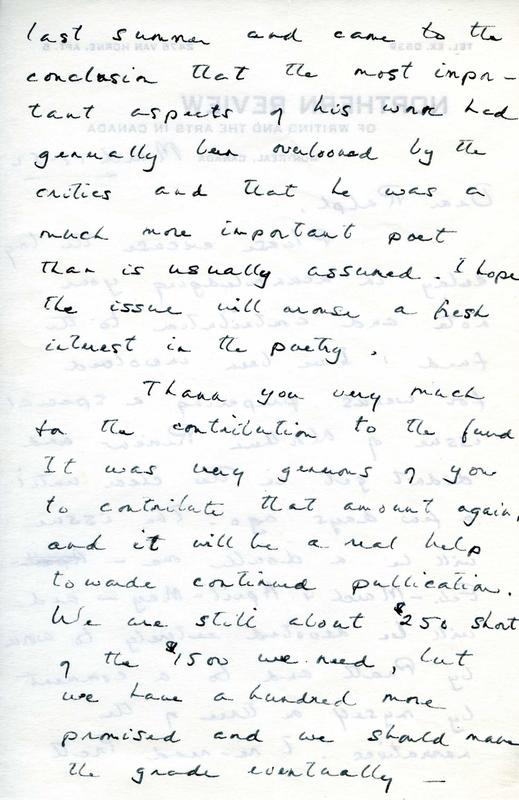 last summer and came to the
conclusion that the most impor-
tant aspects of his work had
generally been overlooked by the
critics and that he was a
much more important poet
than is usually assumed. I hope
the issue will arouse a fresh
interest in the poetry.
Thank you very much
for the contribution to the fund
It was very generous of you
to contribute that amount again,
and it will be a real help
towards continued publication.
We are still about $250 short
of the $1500 we need, but
we have a hundred more
promised and we should make
the grade eventually —